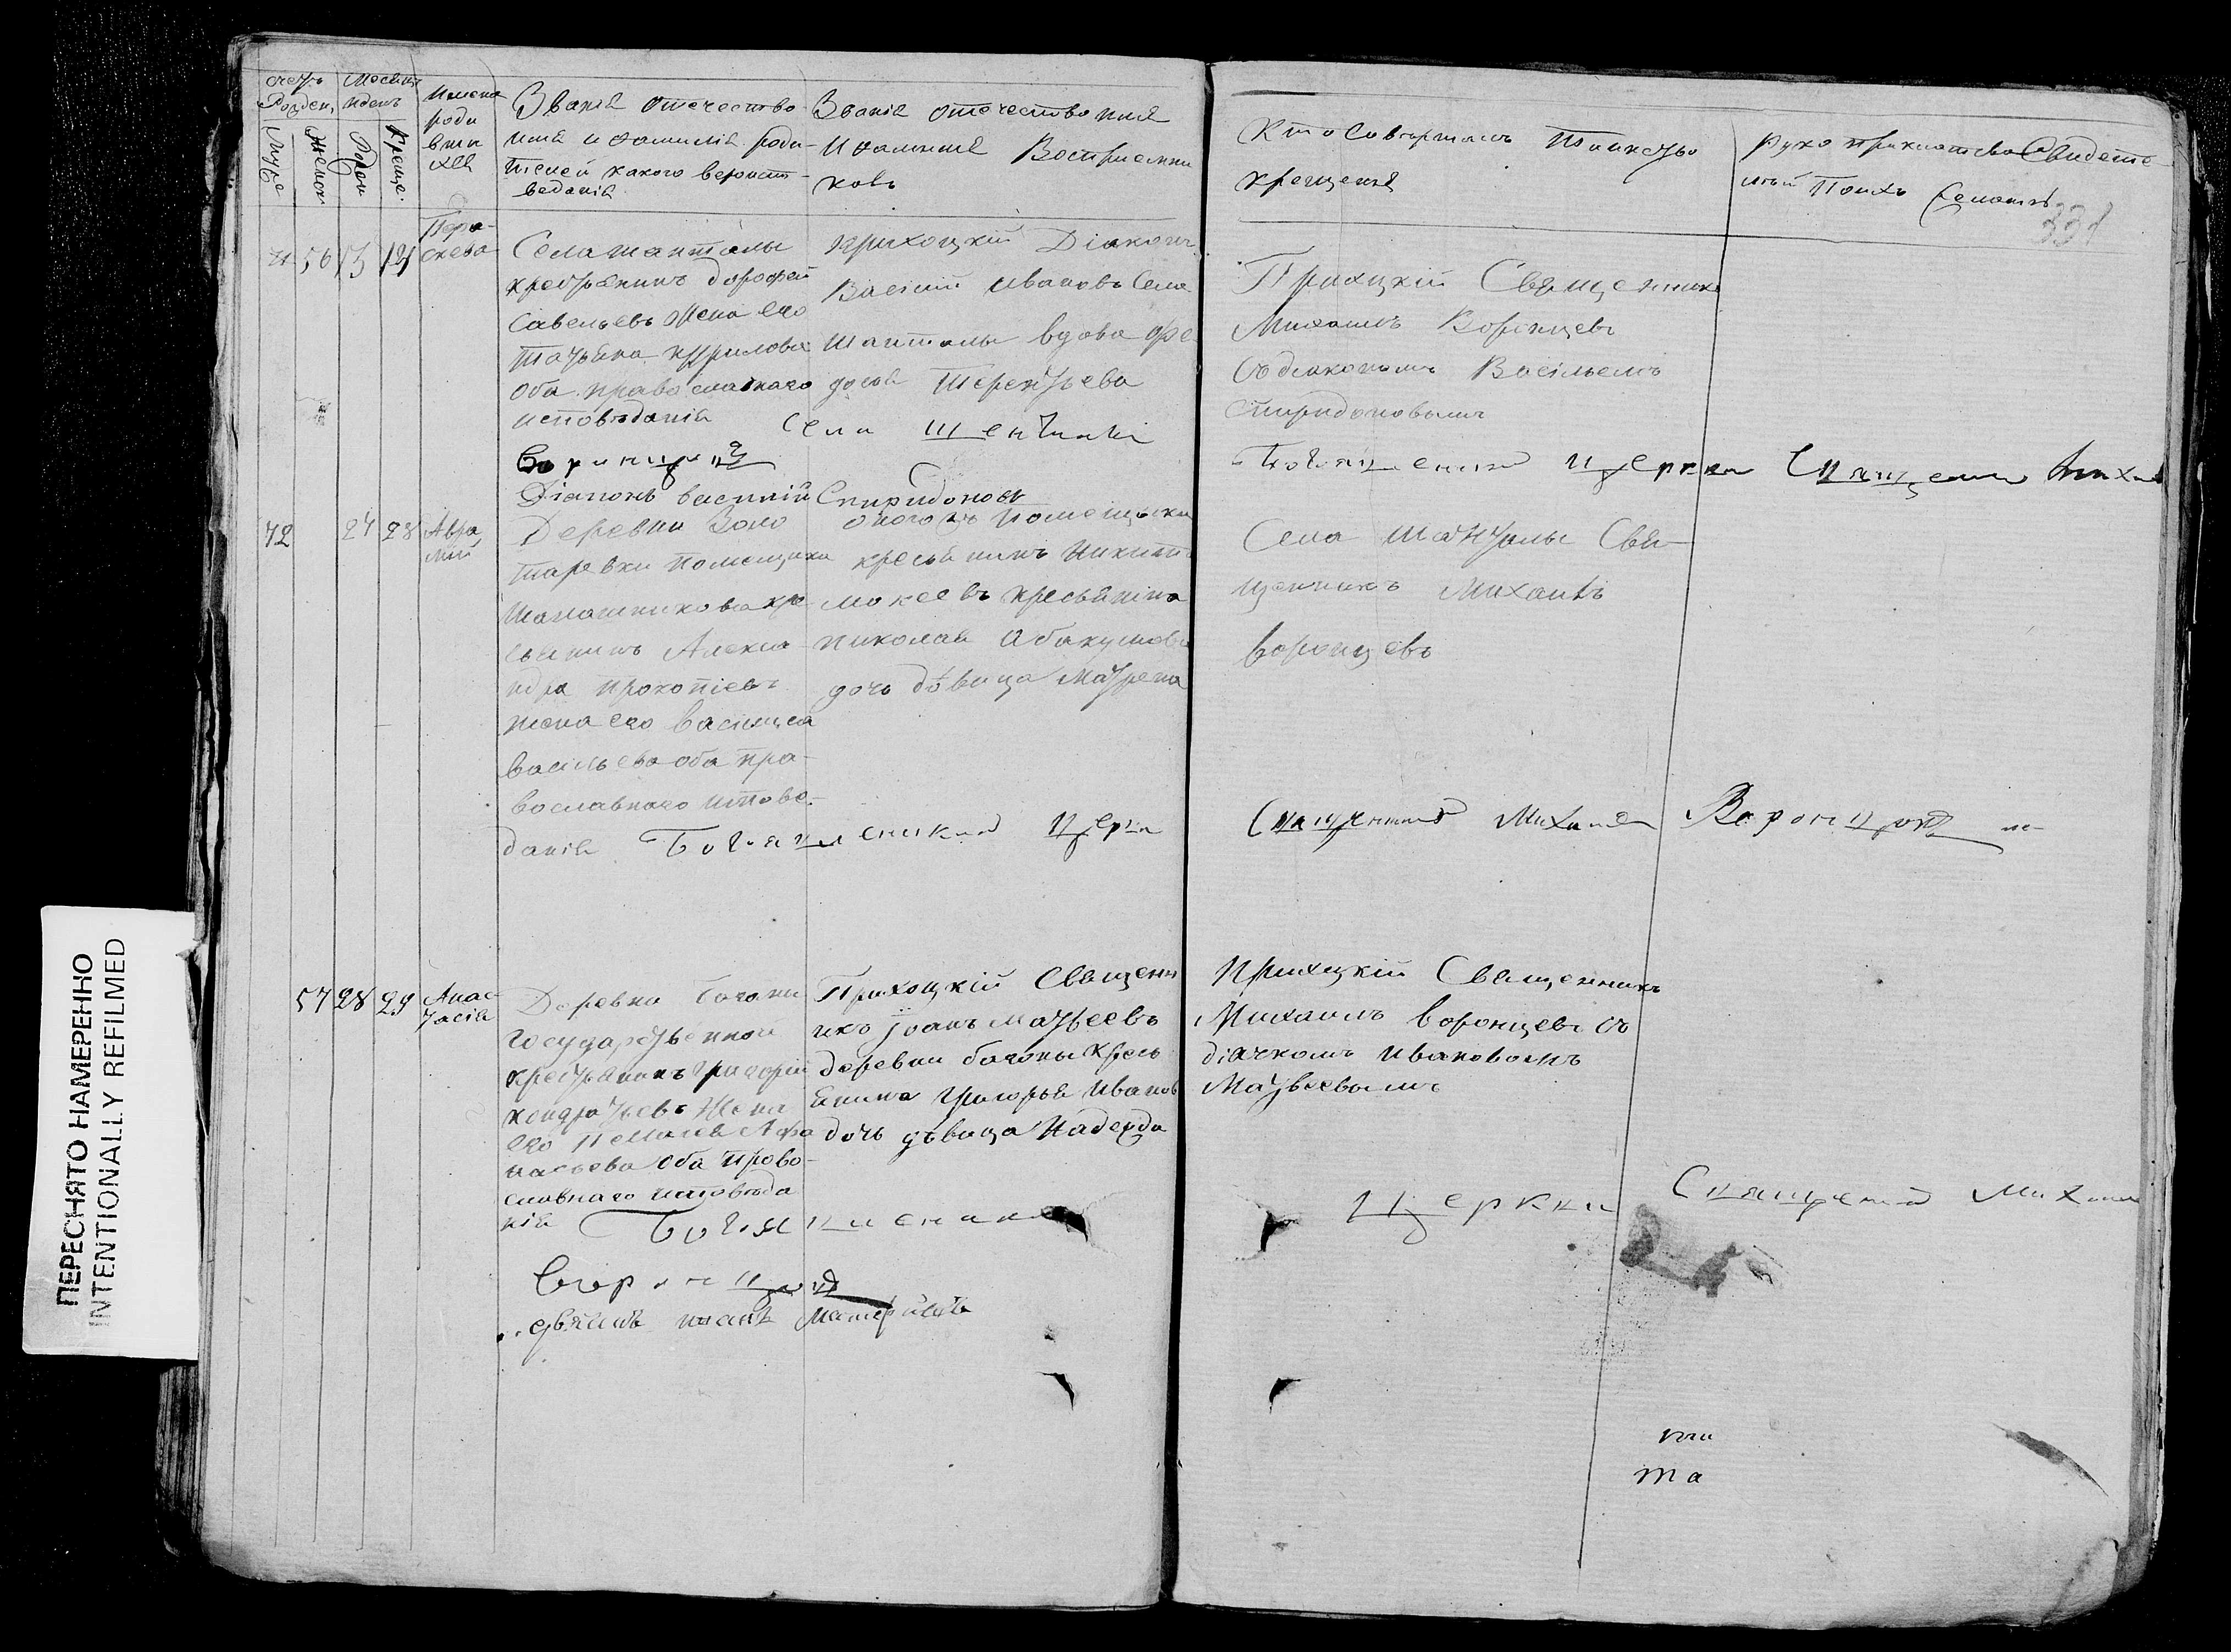 счетъ Рожден.
Муже
Женск
Месяцъ и день
Рожден
Креще.
Имена роди вши хся
Званiя отечество
имя и фамилiя роди
телей какого вероисп
веданiя
Званiя отечество имя
И фамилiя Воспрiемни
ковъ
Кто Совершалъ Таинство
крещенiя
331
56 13 14
Пара
скева
Села Шанталы
крестьянинъ Дорофей
Савельевъ Жена его
Татьяна Кирилова
оба православнаго
исповѣданiя
приходскiй Дiаконъ
Василiй Ивановъ Села
Шанталы вдова Фе
досья Терентьева
Приходскiй Священникъ
Михаилъ Воронцевъ
Съ дiакономъ Васильемъ
Спиридоновымъ
Села Шенталы
Богоявленской Церкви Священникъ Михаилъ
Воронцовъ
Дiаконъ Василий Спиридоновъ
72 24 28
Авра
мiй
Деревни Золо
таревки помещика
Шалашникова кре
сьянинъ Алекса
ндра Прокопiевъ
жена его Василиса
Васильева оба пра-
вославнаго испове-
данiя
оногожъ помещика
кресьянинъ Никита
Мокеевъ кресьянина
Николая Абакумова
дочь дѣвица Матрена
Села Шанталы Свя-
щенникъ Михаилъ
Воронцевъ
Богоявленской Церкви
Священникъ Михаилъ Воронцовъ
57 28 29
Анас
тасiя
Деревни Баганы
государственной
крестьянинъ Григорiй
Кондратьевъ Жена
его Пелагея Афа
насьева оба право-
славнаго исповѣда
нiя
Приходскiй Священн
икъ Iоанъ Матвеевъ
деревни Баганы кресь
янина Григорья Иванов
дочь дѣвица Надежда
Приходскiй Священникъ
Михаилъ Воронцевъ съ
дiячкомъ Ивановомъ
Матвѣевымъ
Богоявленской
Церкви Священникъ Михаилъ
Воронцовъ
та
ПЕРЕСНЯТО НАМЕРЕННО
INTENTIONALLY REFILMED